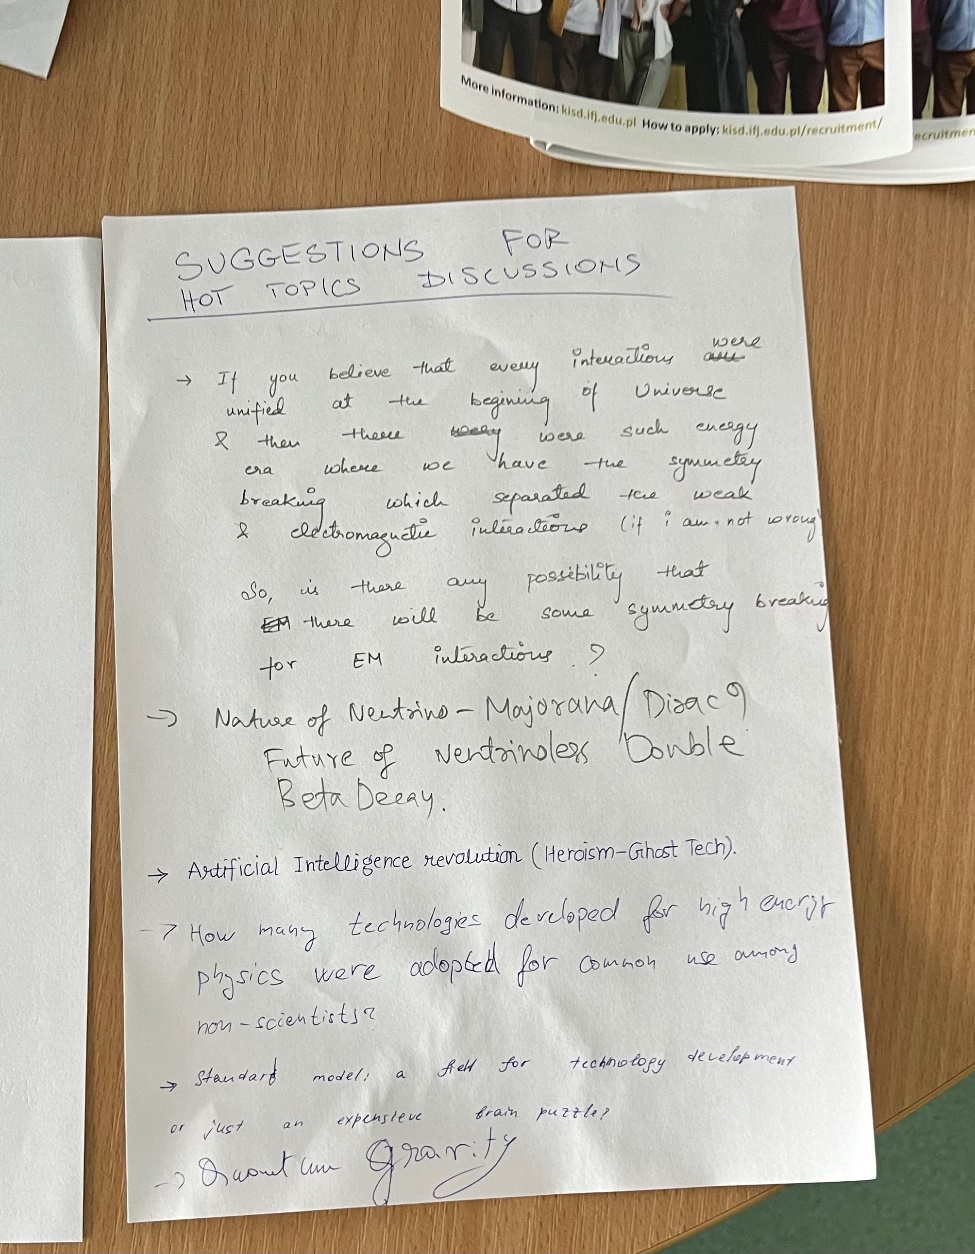 More information: kisd.ifj.edu.pl How to apply: kisd.ifj.edu.pl/recruitment/
ecruitmen
SUGGESTIONS FOR
HOT TOPICS DISCUSSIONS
→ If you believe that every interactions were
unified at the begining of Universe
& then there were such energy
era where we have the symmetry
breaking which separated the weak
& electromagnetic interactions (if i am not wrong)
So, is there any possibility that
there will be some symmetry breaking
for EM interactions ?
→ Nature of Neutrino – Majorana/Dirac ?
Future of Neutrinoless Double
Beta Decay.
→ Artificial Intelligence revolution (Heroism-Ghost Tech).
→ How many technologies developed for high energy
physics were adopted for common use among
non-scientists?
→ Standard model: a field for technology development
or just an expensieve brain puzzle?
→ Quantum gravity